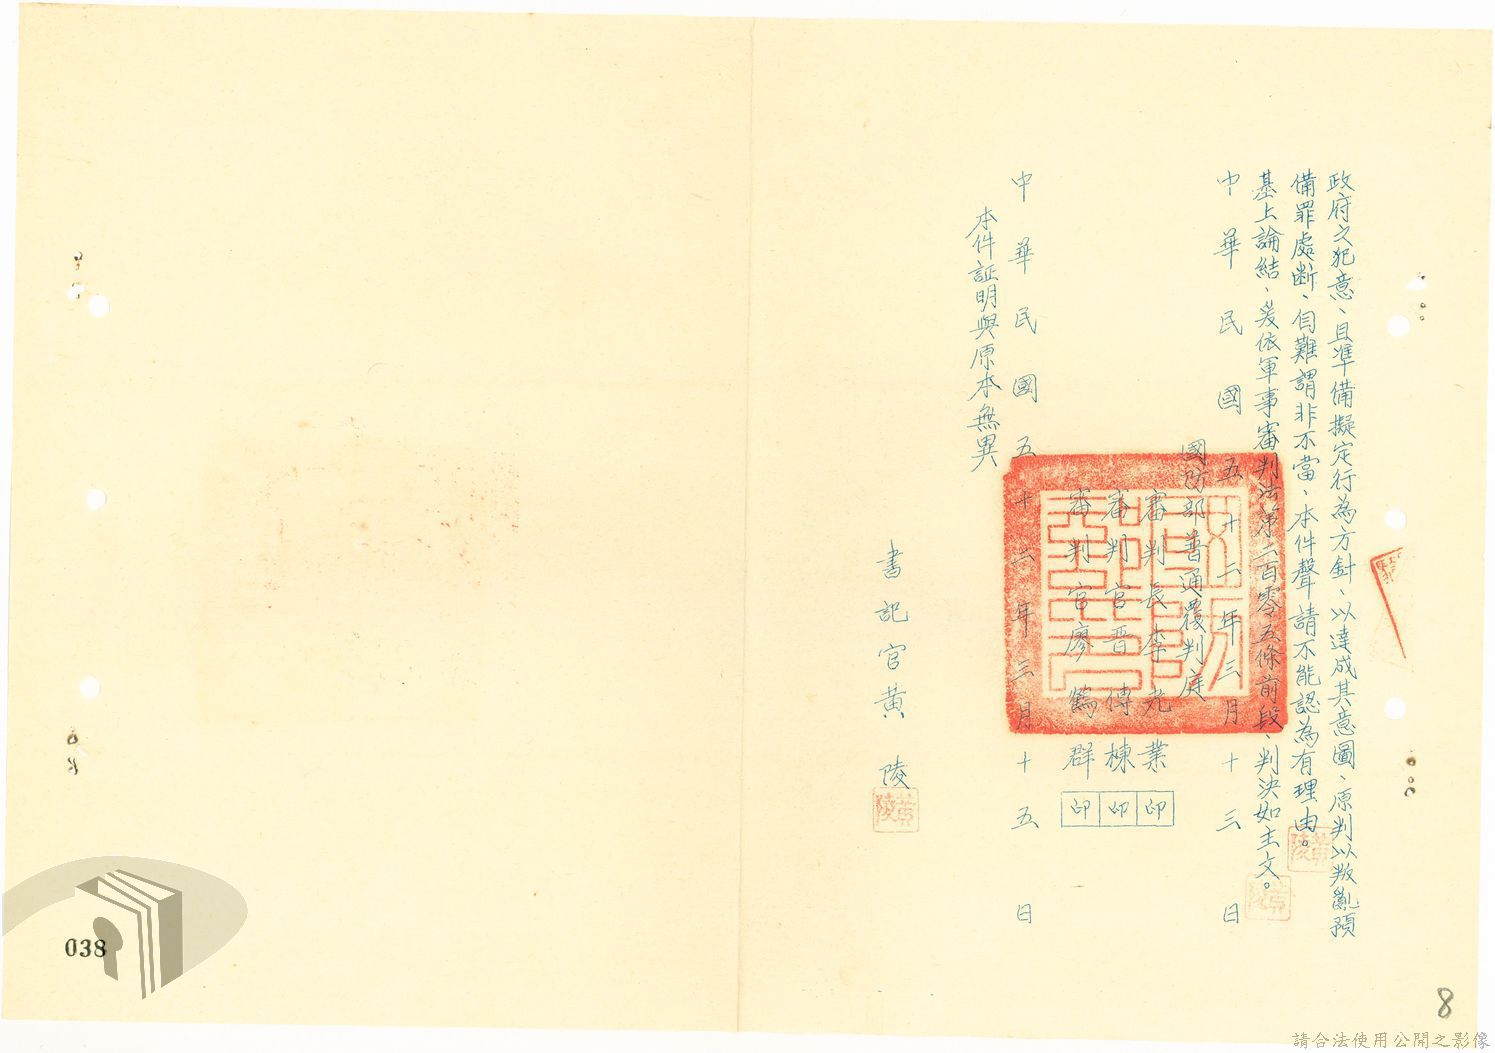 政府之犯意、且準備擬定行為方針、以達成其意圖、原判以叛亂預
備罪處断、自難謂非不當、本件聲請不能認為有理由。
基上論結、爰依軍事審判法第二百零五條前段、判決如主文。
中華民國五十二年三月十三日
國防部普通覆判庭
審判長李光業印
審判官晋傳棟印
審判官廖鶴群印
中華民國五十二年三月十五日
本件証明與原本無異
書記官黃陵
黃陵
黃陵
黃陵
038
8
請合法使用公開之影像